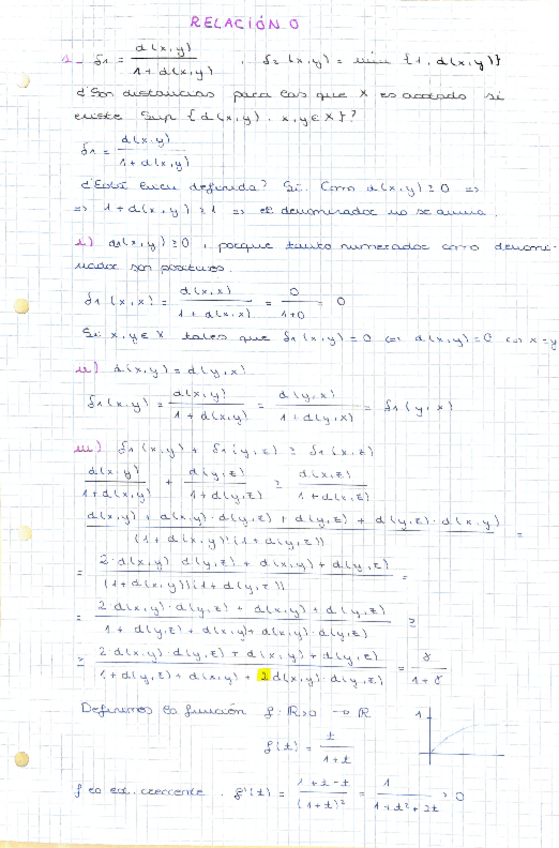 RELACIÓN 0
1- δ1 = d(x,y) / 1 + d(x,y) , δ2(x,y) = min {1, d(x,y)}
¿Son distancias para las que X es acotado si
existe Sup {d(x,y), x,y ∈ X}?
δ1 = d(x,y) / 1 + d(x,y)
¿Está bien definida? Sí. Como d(x,y) ≥ 0 =>
=> 1 + d(x,y) ≥ 1 => el denominador no se anula.
i) d1(x,y) ≥ 0, porque tanto numerador como denomi-
nador son positivos.
δ1(x,x) = d(x,x) / 1 + d(x,x) = 0 / 1+0 = 0
Si x,y ∈ X tales que δ1(x,y) = 0 <=> d(x,y) = 0 <=> x = y
ii) d(x,y) = d(y,x)
δ1(x,y) = d(x,y) / 1 + d(x,y) = d(y,x) / 1 + d(y,x) = δ1(y,x)
iii) δ1(x,y) + δ1(y,z) ≥ δ1(x,z)
d(x,y) / 1 + d(x,y) + d(y,z) / 1 + d(y,z) ≥ d(x,z) / 1 + d(x,z)
d(x,y) + d(x,y)·d(y,z) + d(y,z) + d(y,z)·d(x,y) / (1 + d(x,y))(1 + d(y,z)) =
= 2·d(x,y) d(y,z) + d(x,y) + d(y,z) / (1 + d(x,y))(1 + d(y,z)) =
= 2·d(x,y)·d(y,z) + d(x,y) + d(y,z) / 1 + d(y,z) + d(x,y) + d(x,y)·d(y,z) ≥
≥ 2·d(x,y)·d(y,z) + d(x,y) + d(y,z) / 1 + d(y,z) + d(x,y) + 2d(x,y)·d(y,z) = γ / 1 + γ
Definimos la función f: R≥0 → R
1
f(t) = t / 1 + t
f es est. creciente. f'(t) = 1 + t - t / (1 + t)² = 1 / 1 + t² + 2t > 0